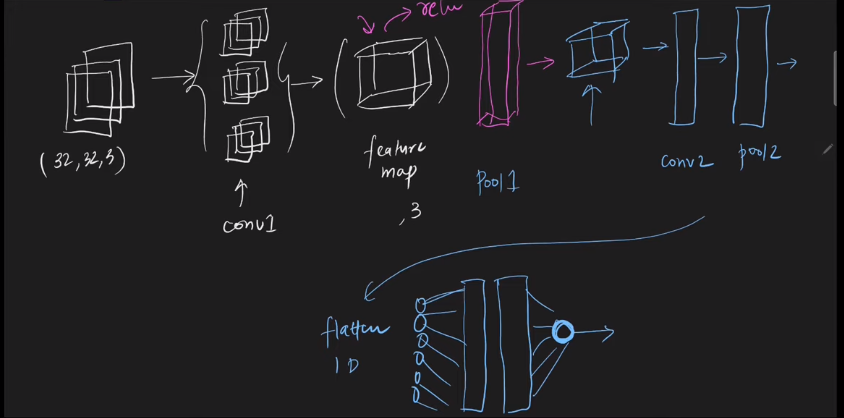 relu
(32,32,3)
conv1
feature
map
,3
Pool1
conv2
pool2
flatten
1D